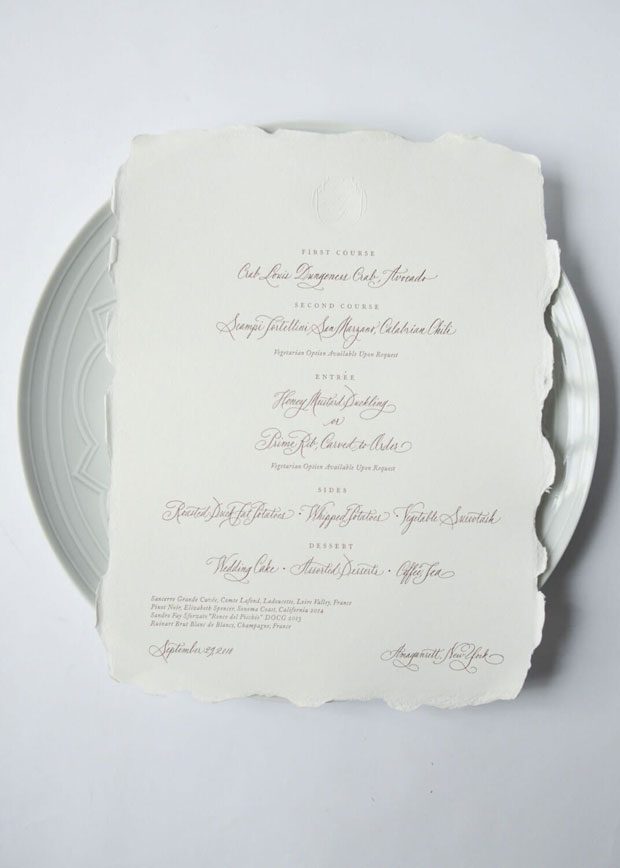 FIRST COURSE
Crab Louis Dungeness Crab, Avocado
SECOND COURSE
Scampi Tortellini, San Marzano, Calabrian Chili
Vegetarian Option Available Upon Request
ENTRÉE
Honey Mustard Duckling
or
Prime Rib, Carved to Order
Vegetarian Option Available Upon Request
SIDES
Roasted Duck Fat Potatoes • Whipped Potatoes • Vegetable Succotash
DESSERT
Wedding Cake • Assorted Desserts • Coffee Tea
Sancerre Grande Cuvée, Comte Lafond, Ladoucette, Loire Valley, France
Pinot Noir, Elizabeth Spencer, Sonoma Coast, California 2014
Sandro Fay Sforzato "Ronco del Picchio" DOCG 2013
Ruinart Brut Blanc de Blancs, Champagne, France
September 2018
Amagansett, New York